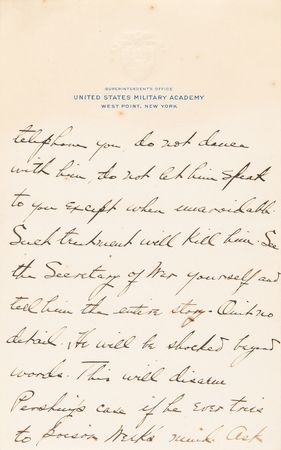 SUPERINTENDENT'S OFFICE
UNITED STATES MILITARY ACADEMY
WEST POINT, NEW YORK
telephone you, do not dance
with him, do not let him speak
to you except when unavoidable.
Such treatment will kill him. See
the Secretary of War yourself and
tell him the entire story. Omit no
detail. He will be shocked beyond
words. This will disarm
Pershing's case if he ever tries
to poison Weeks mind. Ask